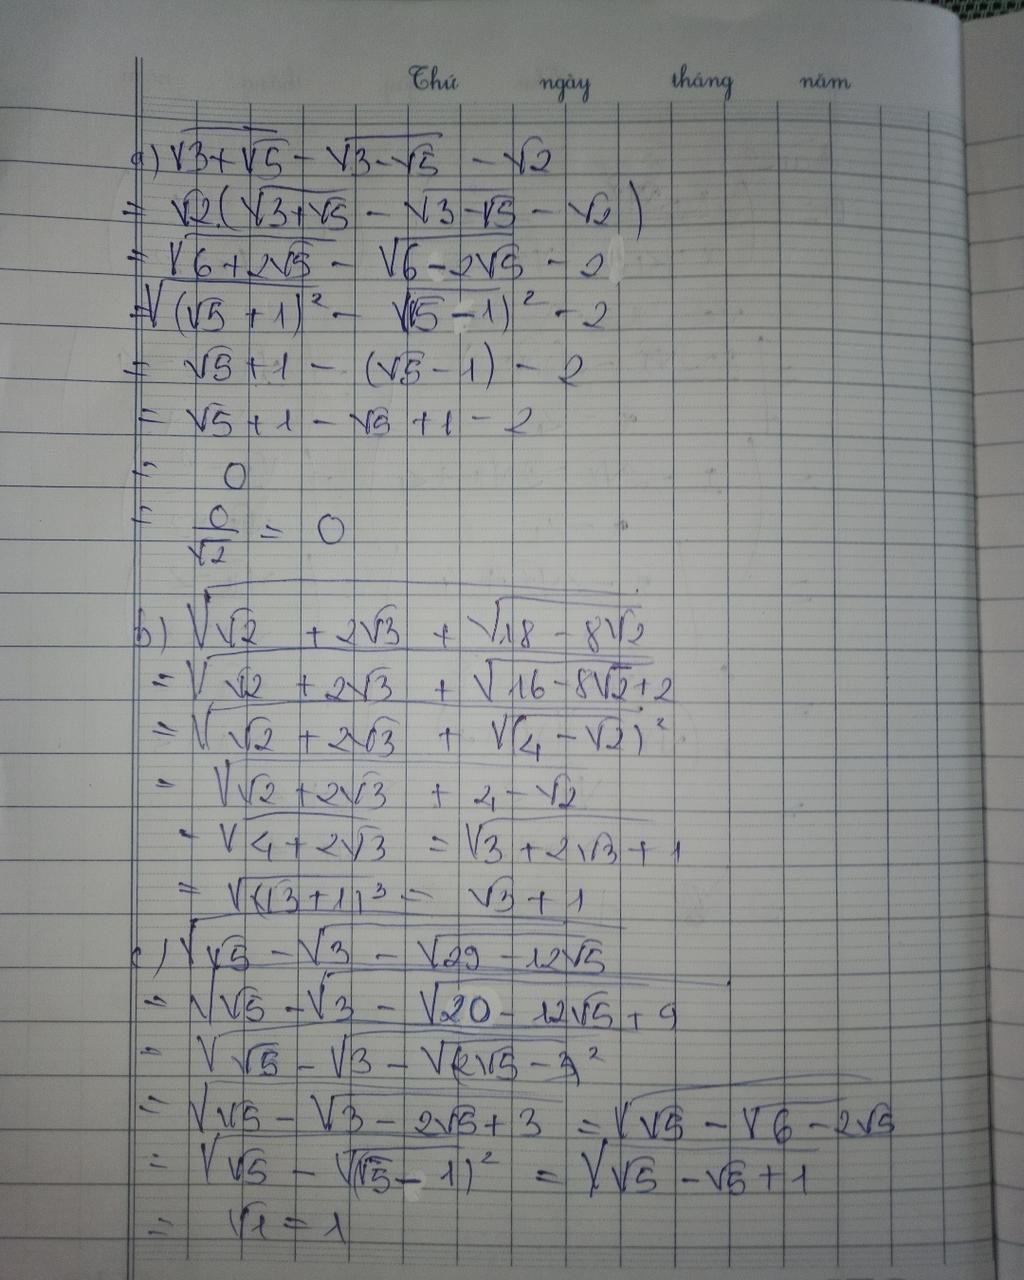 Thứ ngày tháng năm
a) √3+√5 - √3-√5 - √2
= √2(√3+√5 - √3-√5 - √2)
= √6+2√5 - √6-2√5 - 2
= √(√5+1)² - √(√5-1)² - 2
= √5+1 - (√5-1) - 2
= √5+1-√5+1-2
= 0
= 0/√2 = 0
b) √√2 + 2√3 + √18-8√2
= √√2 + 2√3 + √16-8√2+2
= √√2+2√3 + √(4-√2)²
= √√2+2√3 + 4-√2
= √4+2√3 = √3+2√3+1
= √(√3+1)² = √3+1
c) √√5 - √3 - √29-12√5
= √√5 - √3 - √20-12√5+9
= √√5 - √3 - √(2√5-3)²
= √√5 - √3-2√5+3 = √√5 - √6-2√5
= √√5 - √(√5-1)² = √√5-√5+1
= √1 = 1